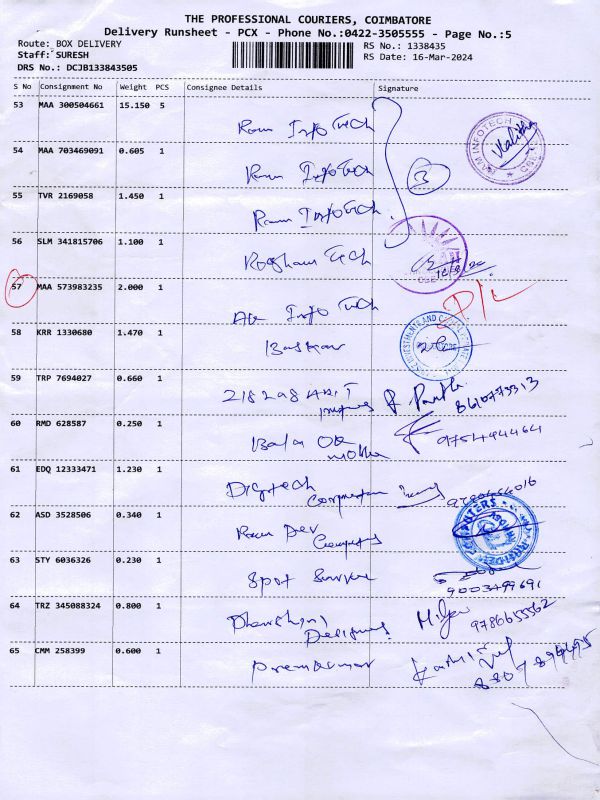 THE PROFESSIONAL COURIERS, COIMBATORE
Delivery Runsheet - PCX - Phone No.:0422-3505555 - Page No.:5
Route: BOX DELIVERY
RS No.: 1338435
Staff: SURESH
RS Date: 16-Mar-2024
DRS No.: DCJB133843505
S No Consignment No Weight PCS Consignee Details Signature
53 MAA 300504661 15.150 5
Ram Info Tech
54 MAA 703469091 0.605 1
Ram Info Tech
3
55 TVR 2169058 1.450 1
Ram Info Tech
56 SLM 341815706 1.100 1
Tech
57 MAA 573983235 2.000 1
Info Tech
58 KRR 1330680 1.470 1
Baskar
59 TRP 7694027 0.660 1
8610773313
60 RMD 628587 0.250 1
Bala
9751494464
61 EDQ 12333471 1.230 1
Digitech
Corporation
62 ASD 3528506 0.340 1
Ram Dev
Computers
63 STY 6036326 0.230 1
Spot Service
9003499691
64 TRZ 345088324 0.800 1
Dharshini
Designs
9786655562
65 CMM 258399 0.600 1
Premkumar